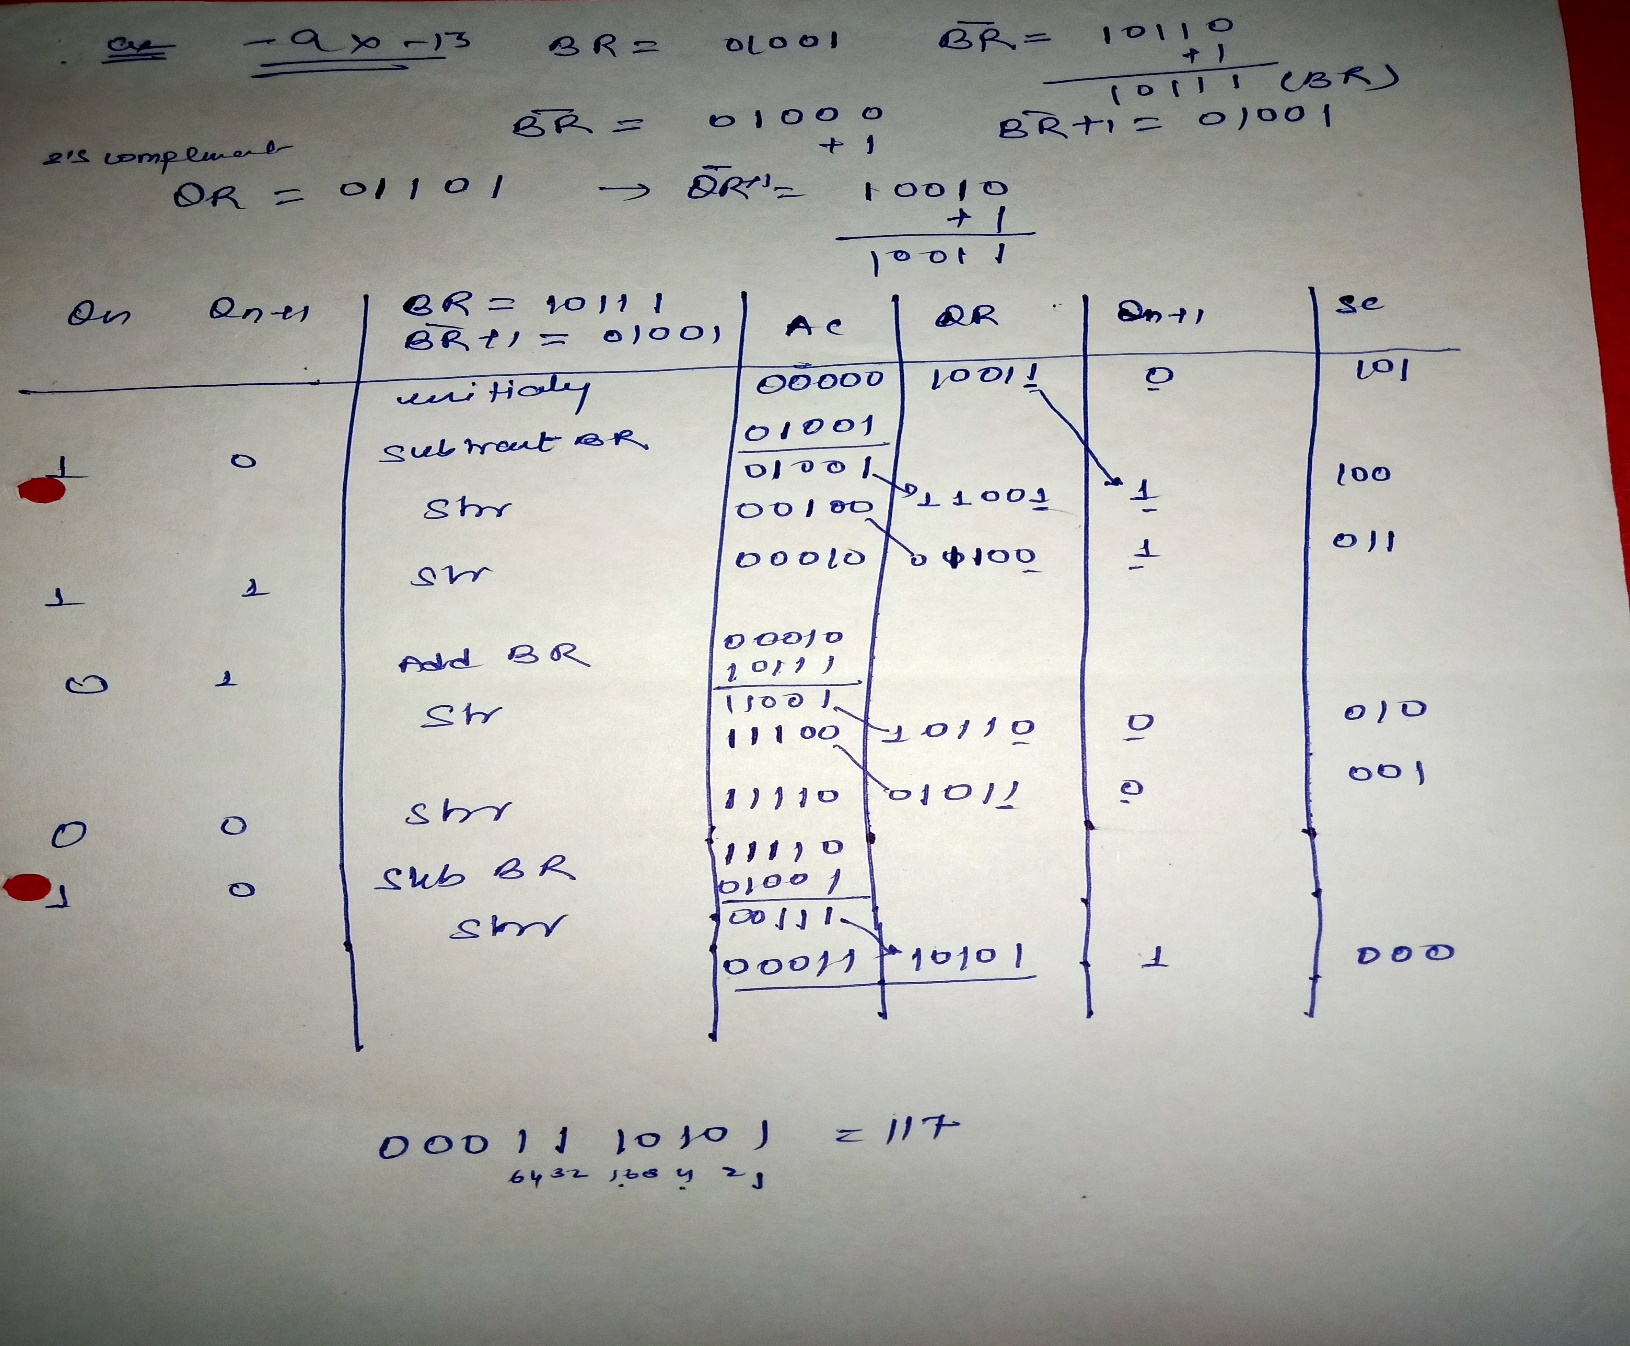 ex -9 x -13 BR = 01001 B̄R = 10110
+1
10111 (BR)
B̄R = 01000 B̄R+1 = 01001
+1
2's complement
QR = 01101 → Q̄R+1 = 10010
+1
10011
Qn Qn+1 BR = 10111 AC QR Qn+1 SC
B̄R+1 = 01001
initialy 00000 10011 0 101
1 0 subtract BR 01001
01001
shr 00100 11001 1 100
1 1 shr 00010 01100 1 011
0 1 Add BR 00010
10111
11001
shr 11100 10110 0 010
0 0 shr 11110 01011 0 001
1 0 Sub BR 11110
01001
00111
shr 00011 10101 1 000
00011 10101 = 117
64 32 16 8 4 2 1